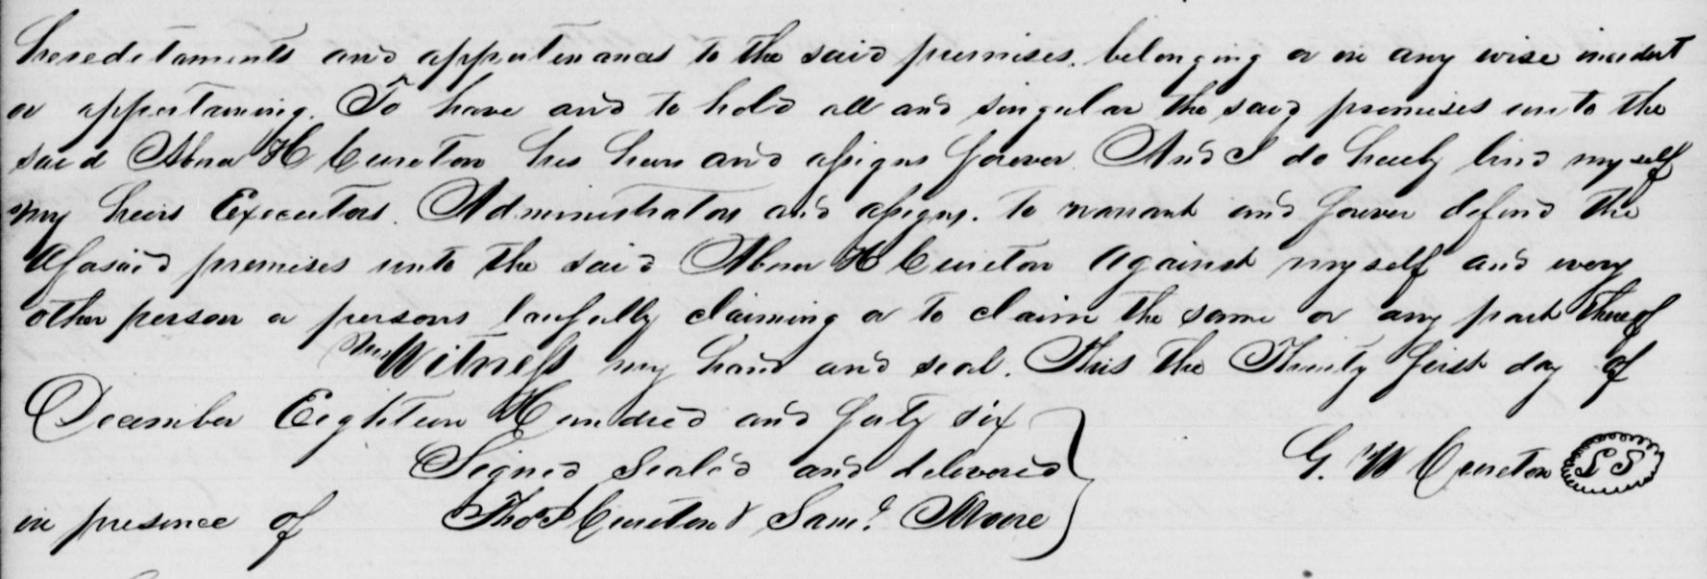 heredetaments and appertenances to the said premises. belonging or in any wise incident
or appertaining. To have and to hold all and singular the said premises unto the
said Abner H Cureton his heirs and assigns forever. And I do hereby bind myself
my heirs Executors. Administrators and assigns. to warrant and forever defend the
Afosaid premises unto the said Abner H Cureton against myself and every
other person or persons lawfully claiming or to claim the same or any part thereof
Witness my hand and seal. This the Thirty first day of
December Eighteen Hundred and forty six
Signed Sealed and delivered G. W Cureton LS
in presence of Thos P Cureton & Saml Moore